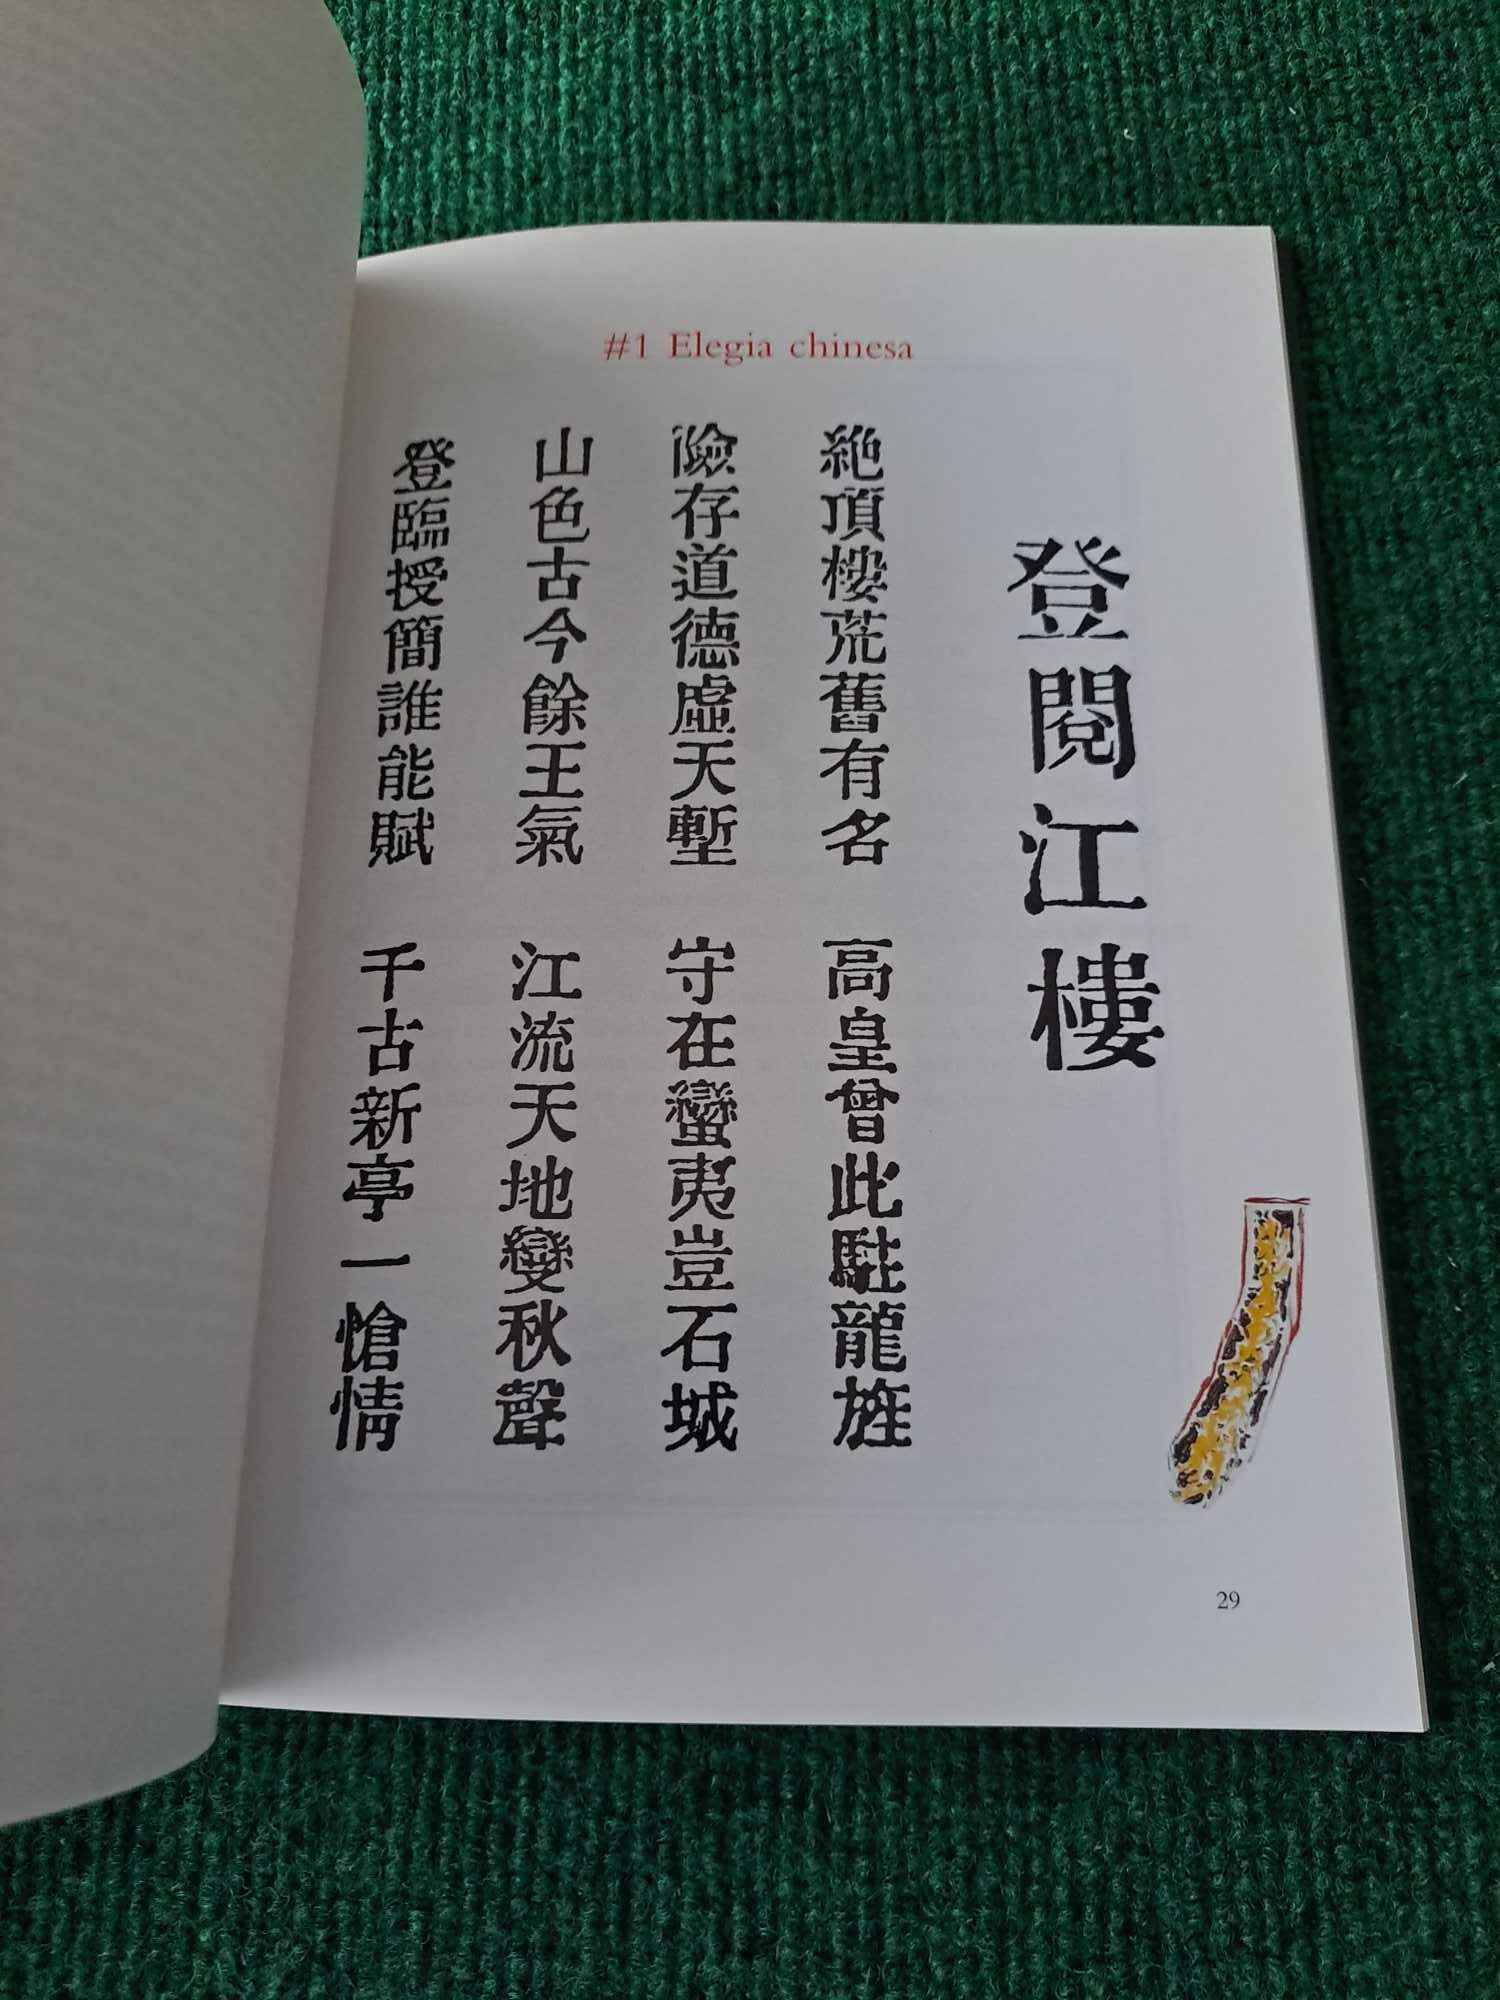 #1 Elegia chinesa
登閱江樓
絶頂樓荒舊有名
高皇曾此駐龍旌
險存道德虛天塹
守在蠻夷豈石城
山色古今餘王氣
江流天地變秋聲
登臨授簡誰能賦
千古新亭一愴情
29